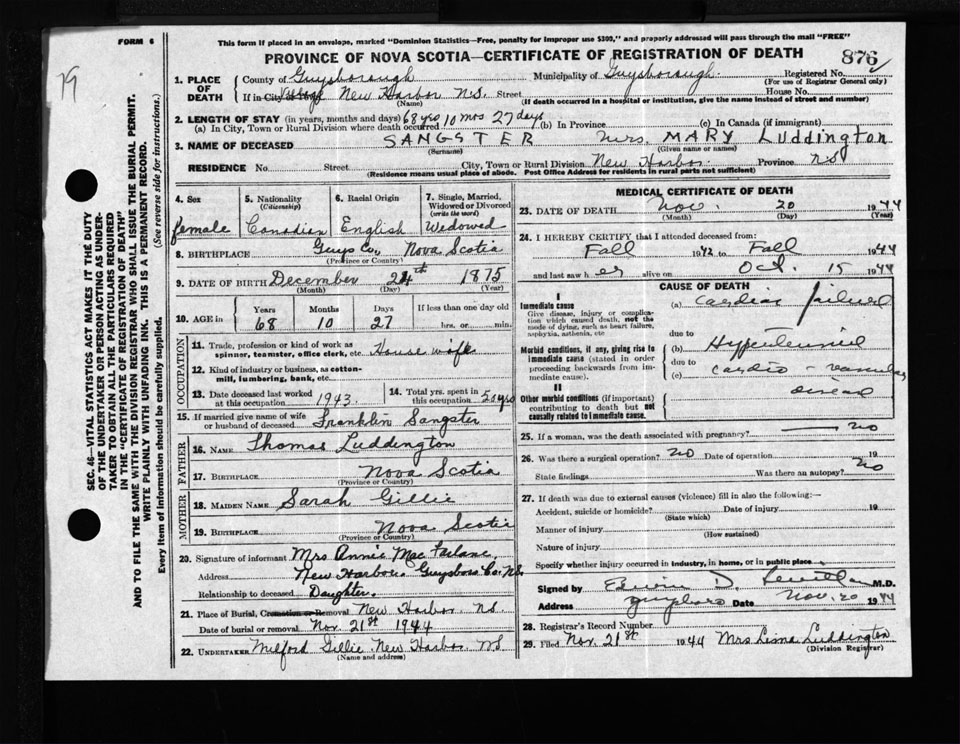 FORM 6
This form if placed in an envelope, marked "Dominion Statistics—Free, penalty for improper use $300," and properly addressed will pass through the mail "FREE"
PROVINCE OF NOVA SCOTIA—CERTIFICATE OF REGISTRATION OF DEATH
876
79
1. PLACE OF DEATH
County of Guysborough Municipality of Guysborough Registered No.
(For use of Registrar General only)
If in City New Harbor N.S. Street House No.
(Name) (If death occurred in a hospital or institution, give the name instead of street and number)
2. LENGTH OF STAY (in years, months and days) 68 yrs 10 mos 27 days
(a) In City, Town or Rural Division where death occurred (b) In Province (c) In Canada (if immigrant)
3. NAME OF DECEASED SANGSTER Mrs. MARY Luddington
(Surname) (Given name or names)
RESIDENCE No. Street City, Town or Rural Division New Harbor Province NS
(Residence means usual place of abode. Post Office Address for residents in rural parts not sufficient)
4. Sex
female
5. Nationality (Citizenship)
Canadian
6. Racial Origin
English
7. Single, Married, Widowed or Divorced (write the word)
Widowed
8. BIRTHPLACE Guys Co. Nova Scotia
(Province or Country)
9. DATE OF BIRTH December 24th 1875
(Month) (Day) (Year)
10. AGE in Years Months Days If less than one day old
68 10 27 hrs. or min.
OCCUPATION
11. Trade, profession or kind of work as spinner, teamster, office clerk, etc. House wife
12. Kind of industry or business, as cotton-mill, lumbering, bank, etc.
13. Date deceased last worked at this occupation 1943.
14. Total yrs. spent in this occupation 50 yrs
15. If married give name of wife or husband of deceased Franklin Sangster
FATHER
16. NAME Thomas Luddington
17. BIRTHPLACE Nova Scotia
(Province or Country)
MOTHER
18. MAIDEN NAME Sarah Gillie
19. BIRTHPLACE Nova Scotia
(Province or Country)
20. Signature of informant Mrs Annie Mac Farlane,
Address New Harbor. Guysboro Co. N.S.
Relationship to deceased Daughter.
21. Place of Burial, Cremation or Removal New Harbor N.S.
Date of burial or removal Nov. 21st 1944
22. UNDERTAKER Milford Gillie New Harbor NS
(Name and address)
MEDICAL CERTIFICATE OF DEATH
23. DATE OF DEATH Nov. 20 1944
(Month) (Day) (Year)
24. I HEREBY CERTIFY that I attended deceased from:
Fall 1942 to Fall 1944
and last saw her alive on Oct. 15 1944
CAUSE OF DEATH
I
Immediate cause
Give disease, injury or complication which caused death, not the mode of dying, such as heart failure, asphyxia, asthenia, etc.
(a) Cardiac failure
due to
Morbid conditions, if any, giving rise to immediate cause (stated in order proceeding backwards from immediate cause).
(b) Hypertensive
due to
(c) Cardio-vascular
disease
II
Other morbid conditions (if important) contributing to death but not causally related to immediate cause.
25. If a woman, was the death associated with pregnancy? no
26. Was there a surgical operation? no Date of operation 19
State findings Was there an autopsy? no
27. If death was due to external causes (violence) fill in also the following:—
Accident, suicide or homicide? Date of injury 19
(State which)
Manner of injury
(How sustained)
Nature of injury
Specify whether injury occurred in industry, in home, or in public place
Signed by D. M.D.
Address Guysboro Date Nov. 20 1944
28. Registrar's Record Number
29. Filed Nov. 21st 1944 Mrs Luddington
(Division Registrar)
SEC. 46—VITAL STATISTICS ACT MAKES IT THE DUTY OF THE UNDERTAKER OR PERSON ACTING AS UNDERTAKER TO OBTAIN ALL THE PARTICULARS REQUIRED IN THE "CERTIFICATE OF REGISTRATION OF DEATH"
AND TO FILE THE SAME WITH THE DIVISION REGISTRAR WHO SHALL ISSUE THE BURIAL PERMIT.
WRITE PLAINLY WITH UNFADING INK. THIS IS A PERMANENT RECORD.
Every item of information should be carefully supplied. (See reverse side for instructions.)